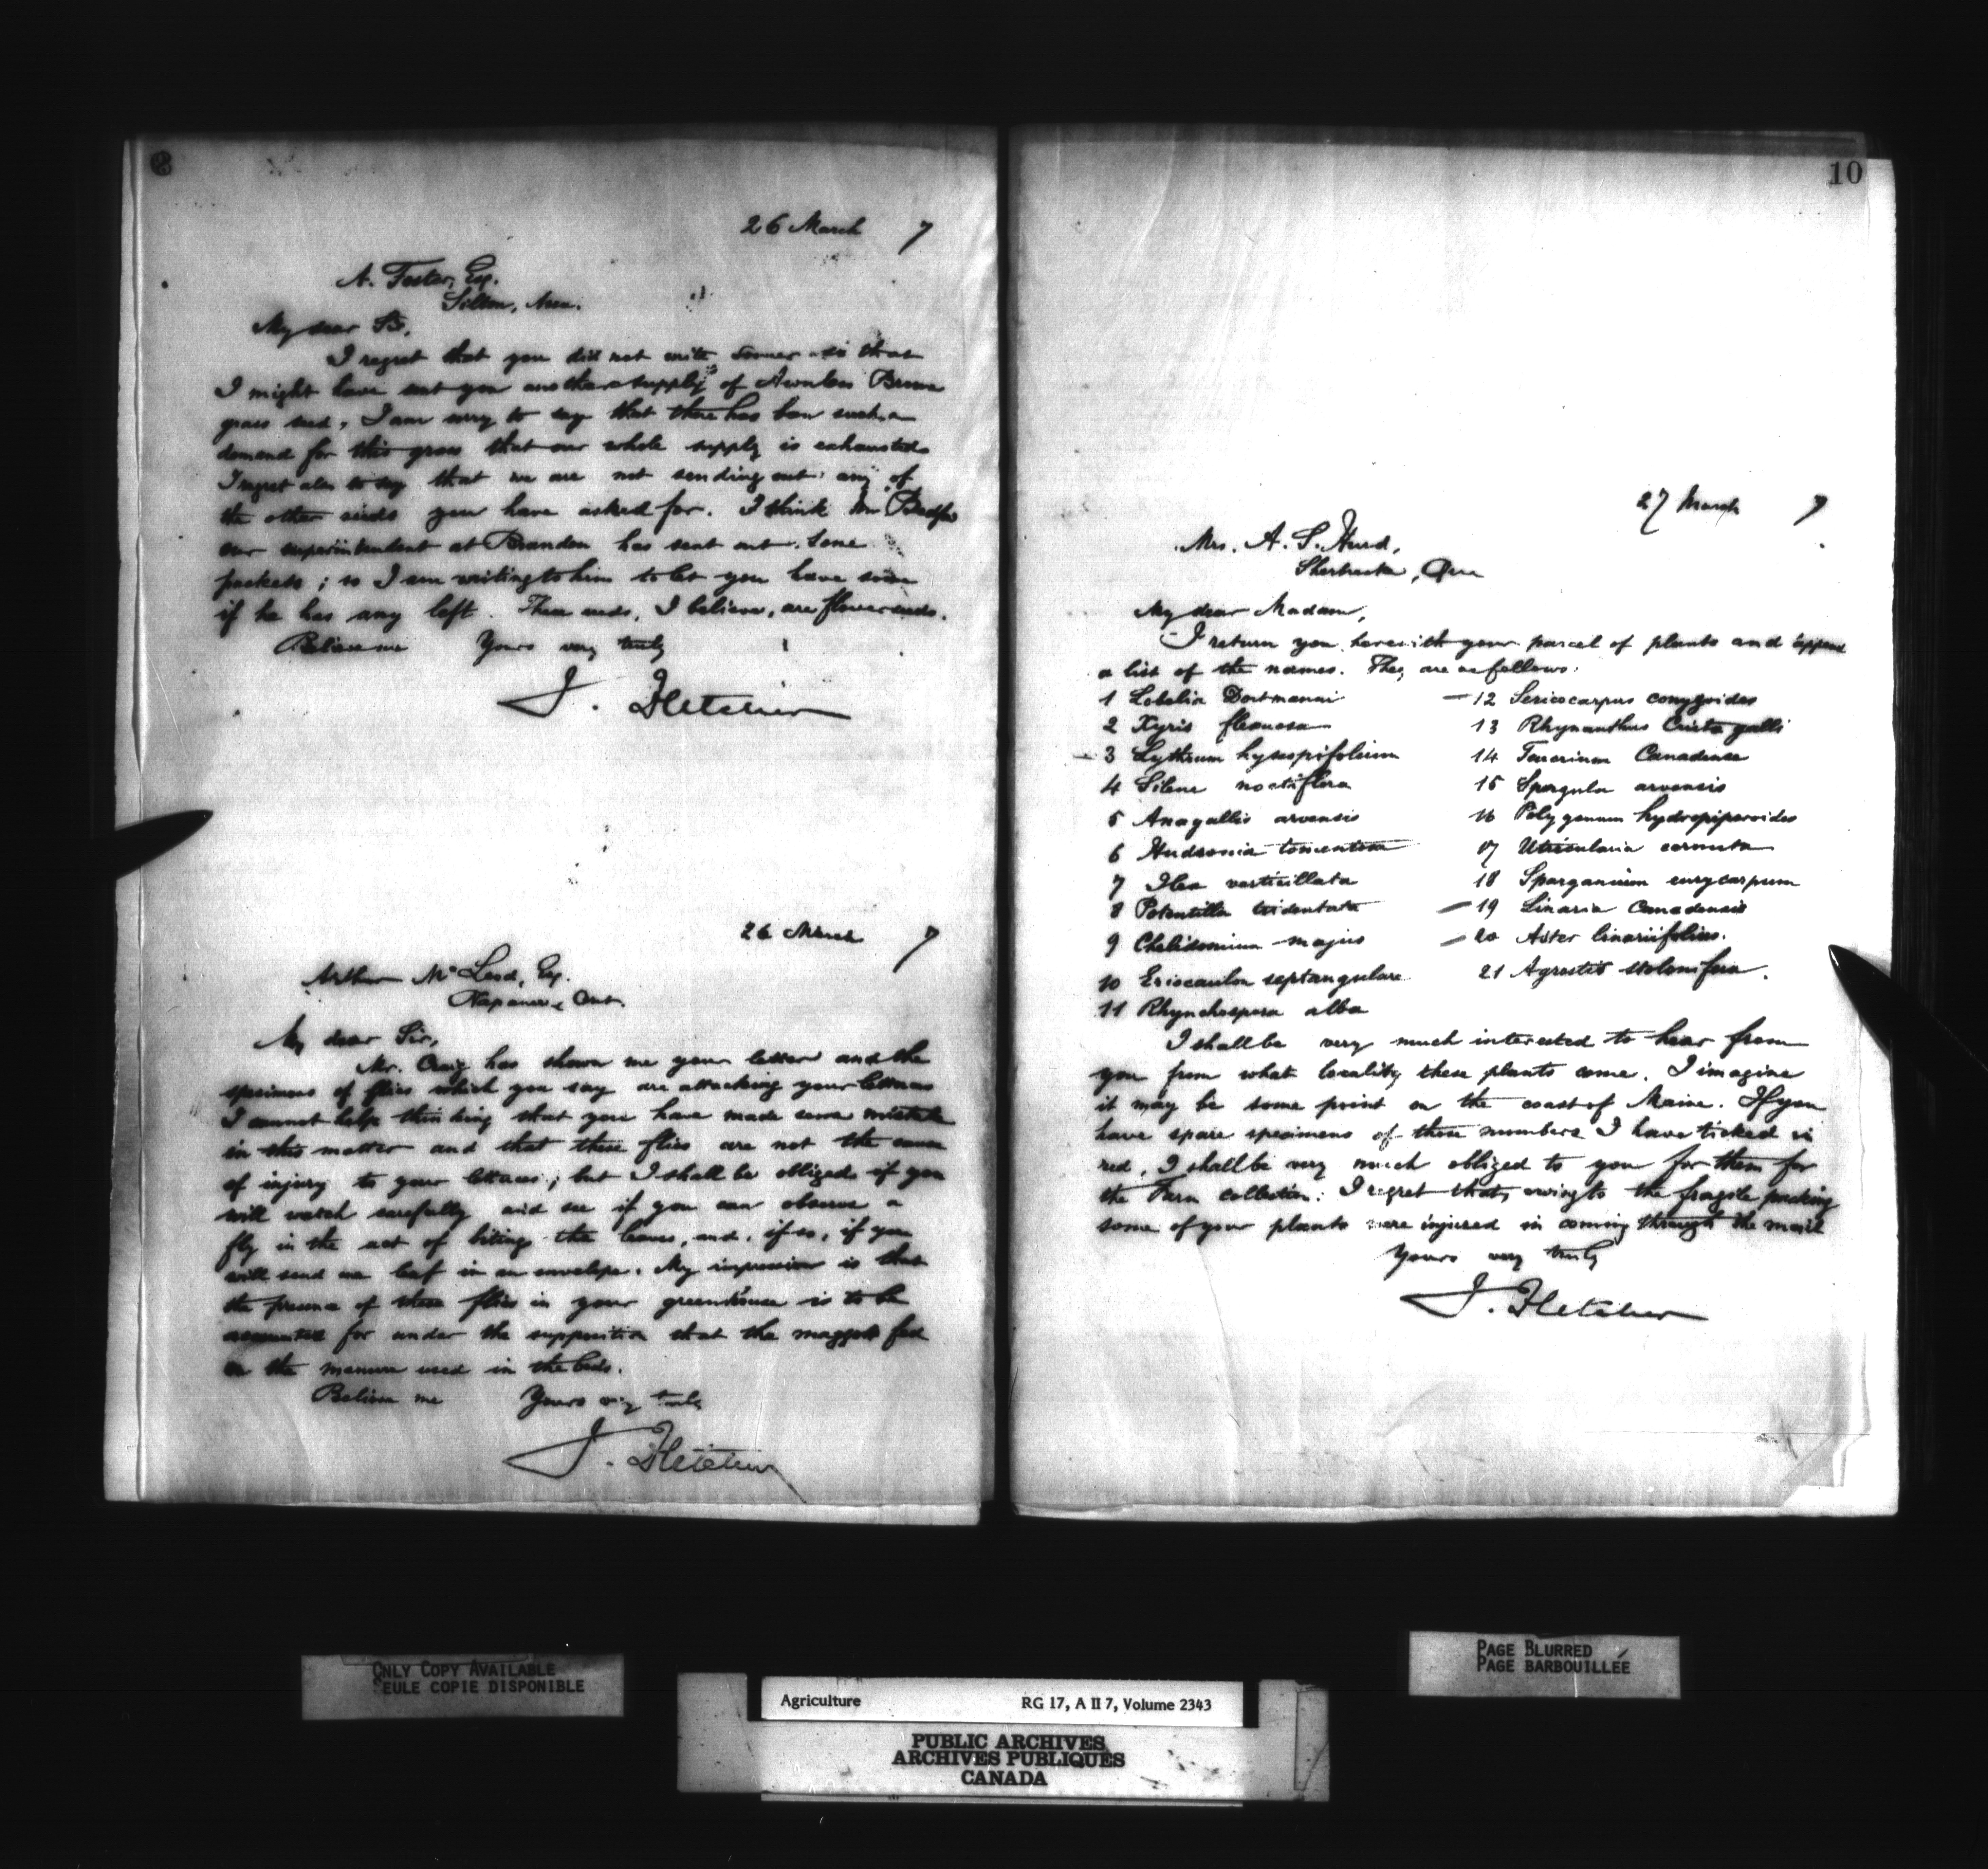 26 March 7
A. Foster, Esq.
Silton, Assa.
My dear Sir,
I regret that you did not write sooner so that
I might have sent you another supply of Awnless Brome
grass seed, I am sorry to say that there has been such a
demand for this grass that our whole supply is exhausted.
I regret also to say that we are not sending out any of
the other seeds you have asked for. I think Mr Bedford
our superintendent at Brandon has sent out some
packets; so I am writing to him to let you have some
if he has any left. These seeds, I believe, are flower seeds.
Believe me Yours very truly
J. Fletcher
26 March 7
Arthur McLeod, Esq.
Napanee, Ont.
My dear Sir,
Mr. Craig has shown me your letter and the
specimens of flies which you say are attacking your lettuces
I cannot help thinking that you have made some mistake
in this matter and that these flies are not the cause
of injury to your lettuces; but I shall be obliged if you
will watch carefully and see if you can observe a
fly in the act of biting the leaves, and, if so, if you
will send me leaf in an envelope. My impression is that
the presence of these flies in your greenhouse is to be
accounted for under the supposition that the maggots fed
on the manure used in the beds.
Believe me Yours very truly
J. Fletcher
10
27 March 7
Mrs. A. S. Hurd,
Sherbrooke, Que
My dear Madam,
I return you herewith your parcel of plants and append
a list of the names. They are as follows:
1 Lobelia Dortmanni
2 Xyris flexuosa
3 Lythrum hyssopifolium
4 Silene noctiflora
5 Anagallis arvensis
6 Hudsonia tomentosa
7 Ilex verticillata
8 Potentilla tridentata
9 Chelidonium majus
10 Eriocaulon septangulare
11 Rhynchospora alba
12 Sericocarpus conyzoides
13 Rhynanthus Crista galli
14 Teucrium Canadense
15 Spergula arvensis
16 Polygonum hydropiperoides
17 Utricularia cornuta
18 Sparganium eurycarpum
19 Linaria Canadensis
20 Aster linariifolius.
21 Agrostis stolonifera.
I shall be very much interested to hear from
you from what locality these plants come. I imagine
it may be some point on the coast of Maine. If you
have spare specimens of those numbers I have ticked in
red, I shall be very much obliged to you for them for
the Farm collection. I regret that, owing to the fragile packing
some of your plants were injured in coming through the mail
Yours very truly
J. Fletcher
ONLY COPY AVAILABLE
SEULE COPIE DISPONIBLE
PAGE BLURRED
PAGE BARBOUILLÉE
Agriculture RG 17, A II 7, Volume 2343
PUBLIC ARCHIVES
ARCHIVES PUBLIQUES
CANADA